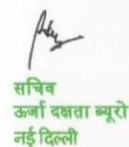 सचिव
ऊर्जा दक्षता ब्यूरो
नई दिल्ली